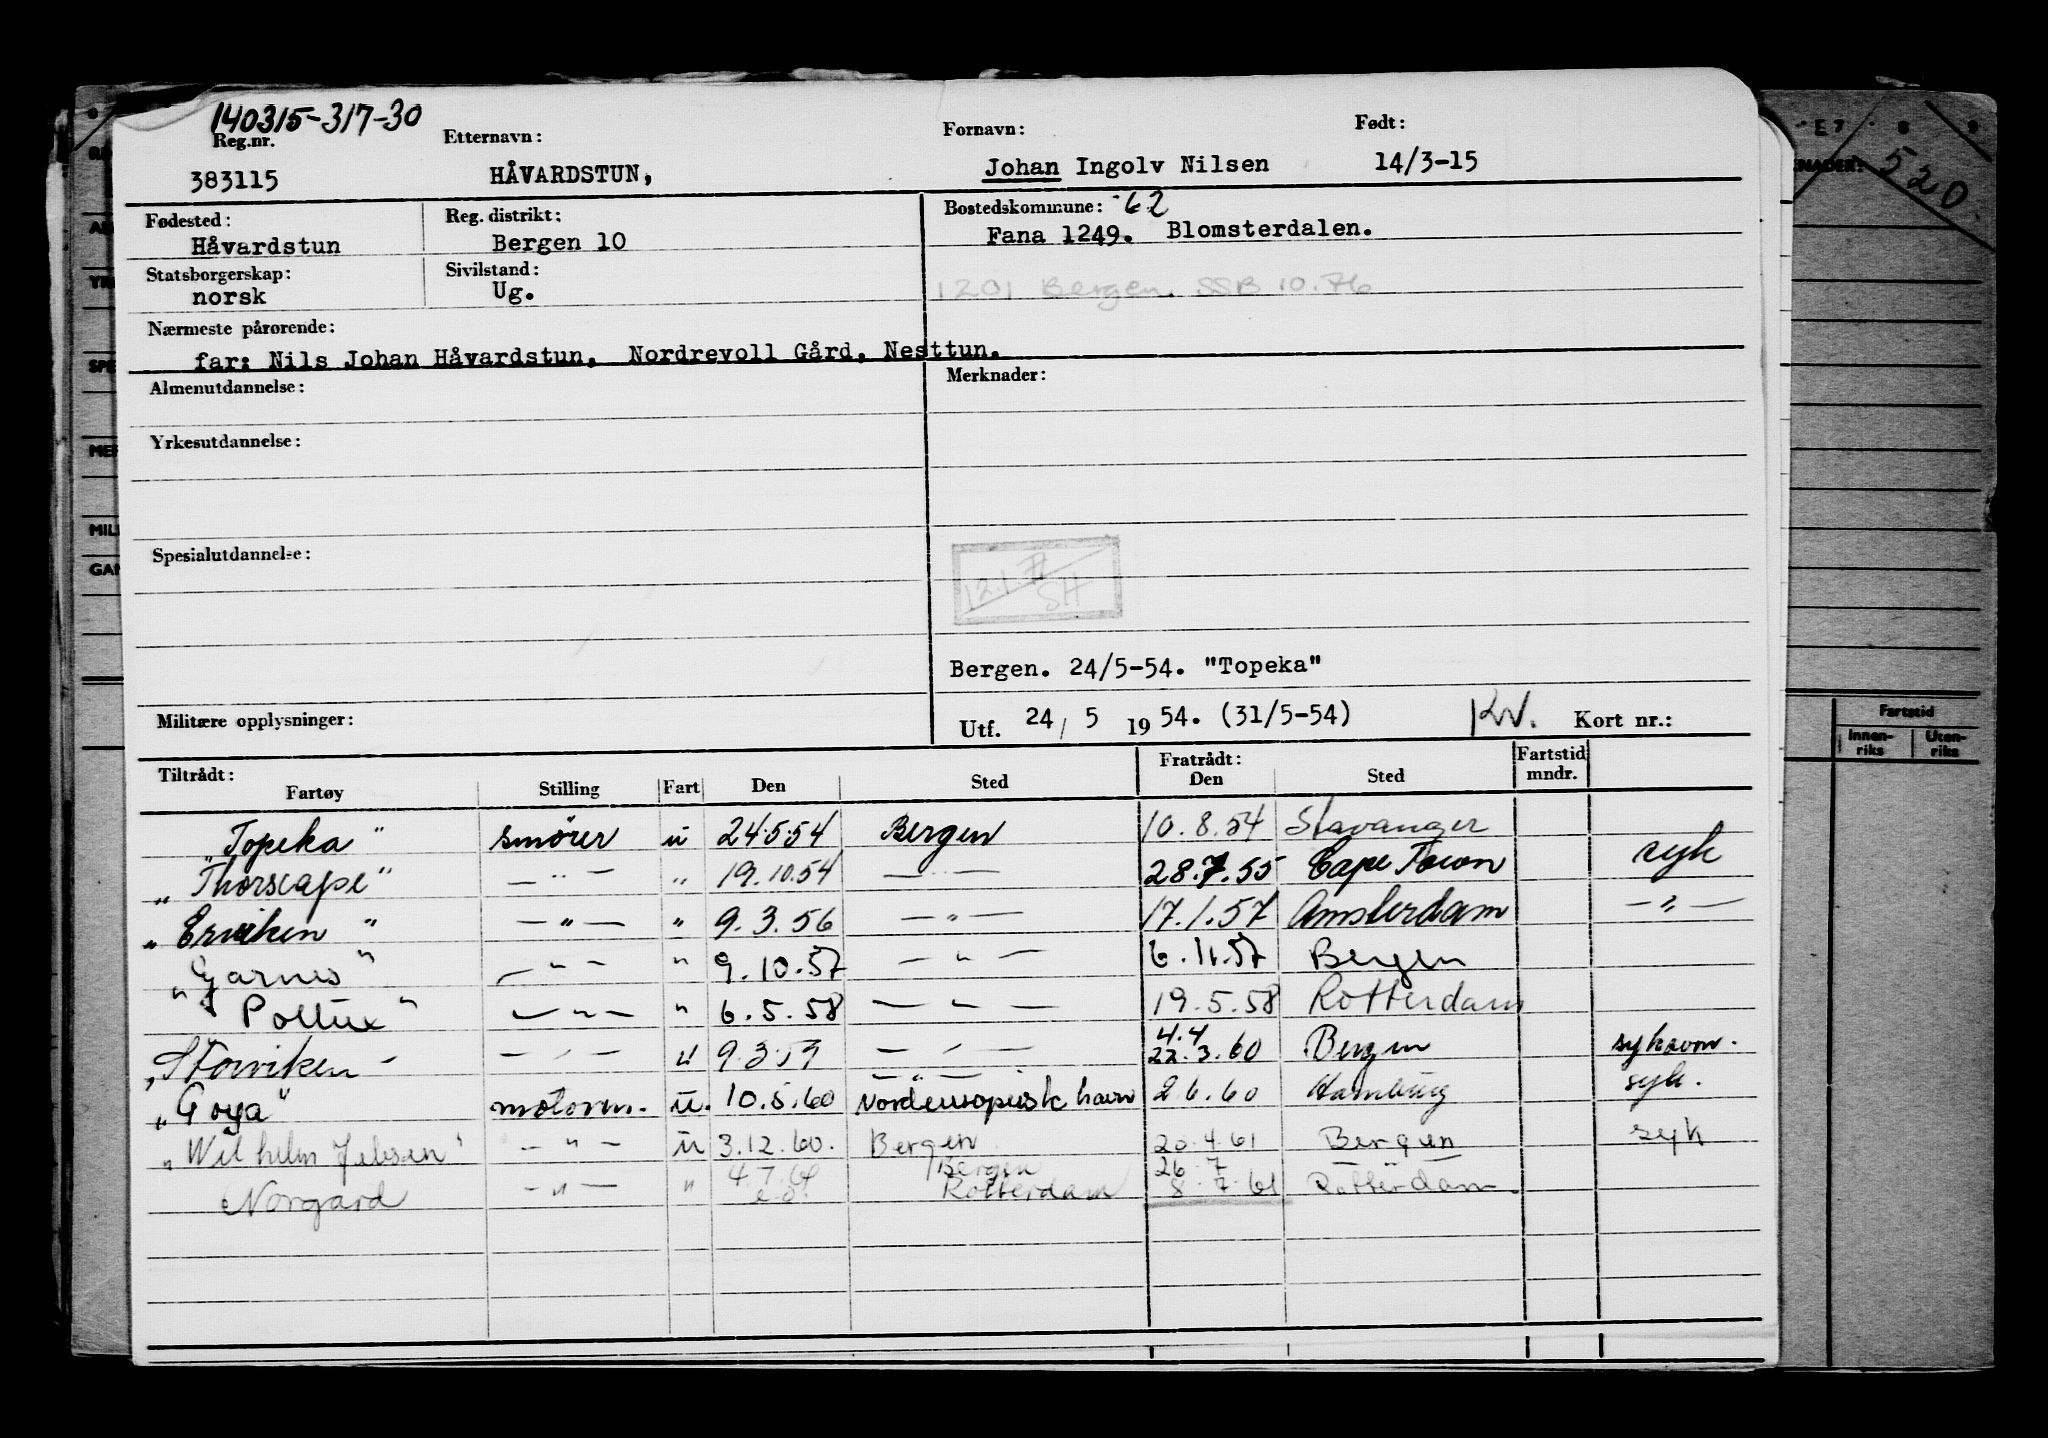 140315-317-30
Reg.nr. Etternavn: Fornavn: Født:
383115 HÅVARDSTUN, Johan Ingolv Nilsen 14/3-15
Fødested: Reg. distrikt: Bostedskommune: 62
Håvardstun Bergen 10 Fana 1249. Blomsterdalen.
Statsborgerskap: Sivilstand:
norsk Ug. 1201 Bergen. SSB 10.76
Nærmeste pårørende:
far: Nils Johan Håvardstun, Nordrevoll Gård, Nesttun.
Almenutdannelse: Merknader:
Yrkesutdannelse:
Spesialutdannelse:
12.1. SH
Bergen. 24/5-54. "Topeka"
Militære opplysninger: Utf. 24/ 5 1954. (31/5-54) KW. Kort nr.:
Tiltrådt: Fratrådt: Fartstid
Fartøy Stilling Fart Den Sted Den Sted mndr.
"Topeka" smörer u 24.5.54 Bergen 10.8.54 Stavanger
"Thorscape" — " — " 19.10.54 — " — 28.7.55 Cape Town syk
"Erviken" — " — " 9.3.56 — " — 17.1.57 Amsterdam — " —
"Garnes" — " — " 9.10.57 — " — 6.11.57 Bergen
"Pollux" — " — " 6.5.58 — " — 19.5.58 Rotterdam
4.4
"Storviken" — " — u 9.3.59 — " — 22.3.60 Bergen sykavm.
"Goya" motorm. u. 10.5.60 Nordeuropeisk havn 2.6.60 Hamburg syk.
"Wilhelm Jebsen" — " — u 3.12.60. Bergen 20.4.61 Bergen syk
4.7.61 Bergen 26.7
Norgard — " — " Rotterdam 8.7.61 Rotterdam.
E7 8 9
520
Fartstid
Innen-riks Uten-riks